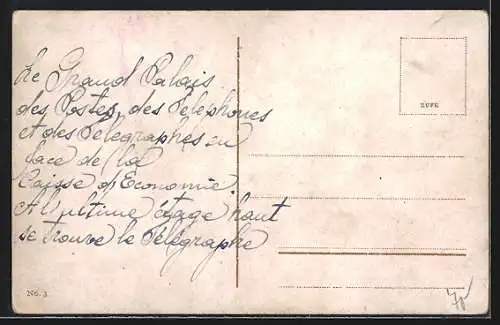 Le Grand Palais
des Postes, des Téléphones
et des Télégraphes en
face de la
Caisse d'Economie
A l'ultime étage haut
se trouve le Télégraphe
No. 3